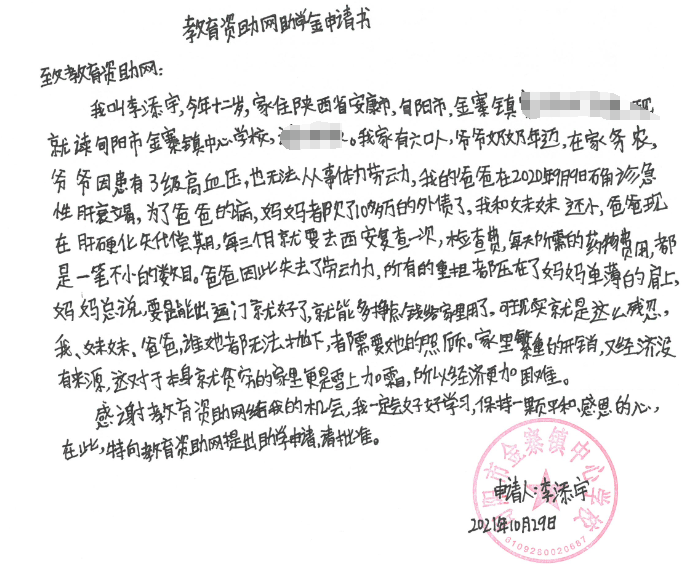 教育资助网助学金申请书
致教育资助网：
我叫李添宇，今年十二岁，家住陕西省安康市，旬阳市，金寨镇 现
就读旬阳市金寨镇中心学校， 。我家有六口人，爷爷奶奶年迈，在家务农，
爷爷因患有3级高血压，也无法从事体力劳动，我的爸爸在2020年9月9日确诊急
性肝衰竭，为了爸爸的病，妈妈都欠了10多万的外债了，我和妹妹还小，爸爸现
在肝硬化失代偿期，每三个月就要去西安复查一次，检查费，每天所需的药物费用，都
是一笔不小的数目。爸爸因此失去了劳动力，所有的重担都压在了妈妈单薄的肩上，
妈妈总说，要是能出远门就好了，就能多挣点钱给家里用了。可现实就是这么残忍，
我、妹妹、爸爸，谁她都无法抛下，都需要她的照顾。家里繁重的开销，又经济没
有来源，这对于本身就贫穷的家里更是雪上加霜，所以经济更加困难。
感谢教育资助网给我的机会，我一定好好学习，保持一颗平和感恩的心，
在此，特向教育资助网提出助学申请，请批准。
申请人：李添宇
2021年10月29日
旬阳市金寨镇中心学校
6109280020687